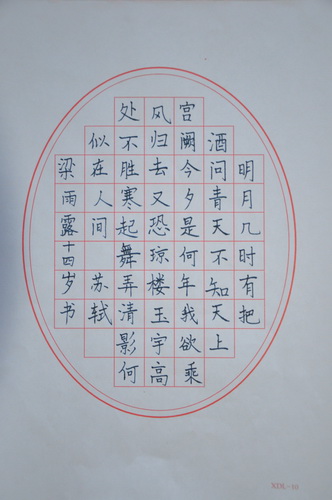 明月几时有把
酒问青天不知天上
宫阙今夕是何年我欲乘
风归去又恐琼楼玉宇高
处不胜寒起舞弄清影何
似在人间 苏轼
梁雨露十四岁书